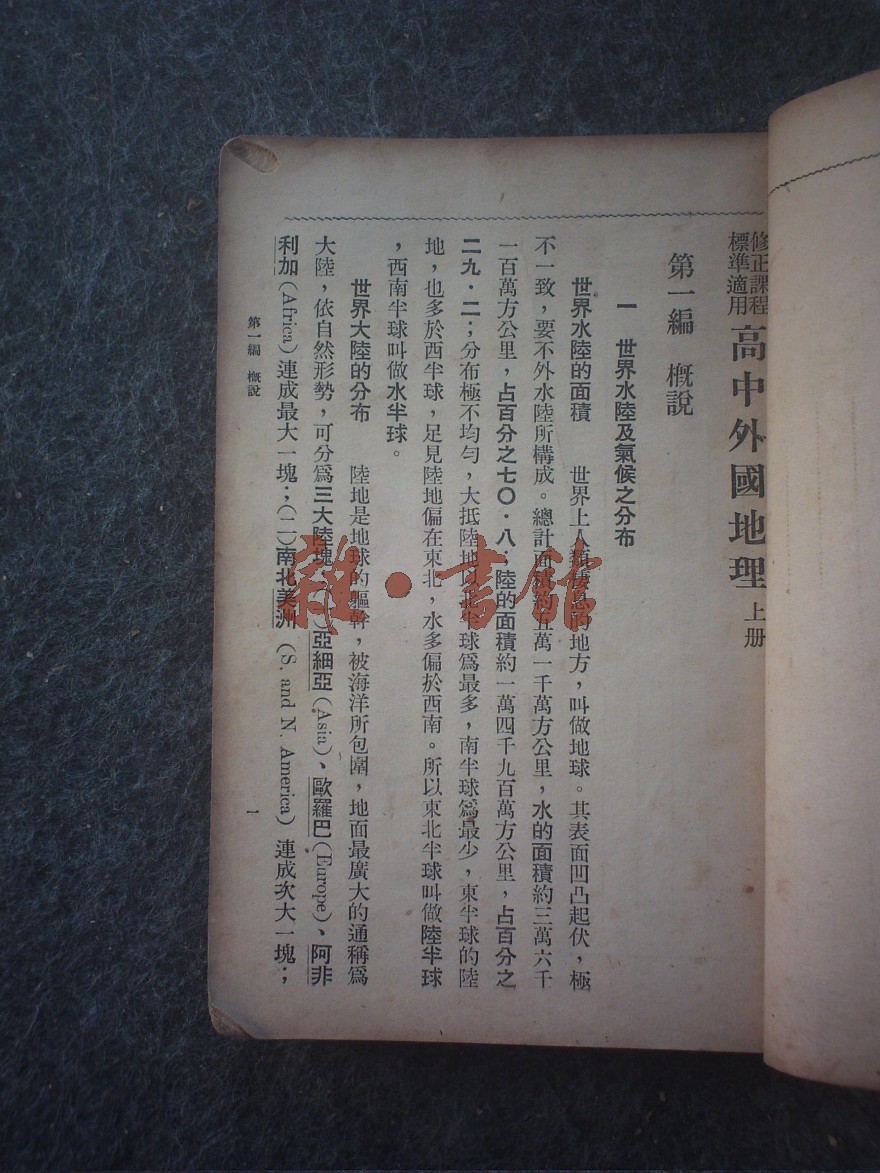 修正課程
標準適用
高中外國地理 上册
第一編 概説
一 世界水陸及氣候之分布
世界水陸的面積 世界上人類棲息的地方，叫做地球。其表面凹凸起伏，極
不一致，要不外水陸所構成。總計面積約五萬一千萬方公里，水的面積約三萬六千
一百萬方公里，占百分之七〇・八；陸的面積約一萬四千九百萬方公里，占百分之
二九・二；分布極不均勻，大抵陸地以北半球爲最多，南半球爲最少，東半球的陸
地，也多於西半球，足見陸地偏在東北，水多偏於西南。所以東北半球叫做陸半球
，西南半球叫做水半球。
世界大陸的分布 陸地是地球的軀幹，被海洋所包圍，地面最廣大的通稱爲
大陸，依自然形勢，可分爲三大陸塊 亞細亞(Asia)、歐羅巴(Europe)、阿非
利加(Africa)連成最大一塊；(二)南北美洲 (S. and N. America) 連成次大一塊；
第一編 概説
一
雜・書館